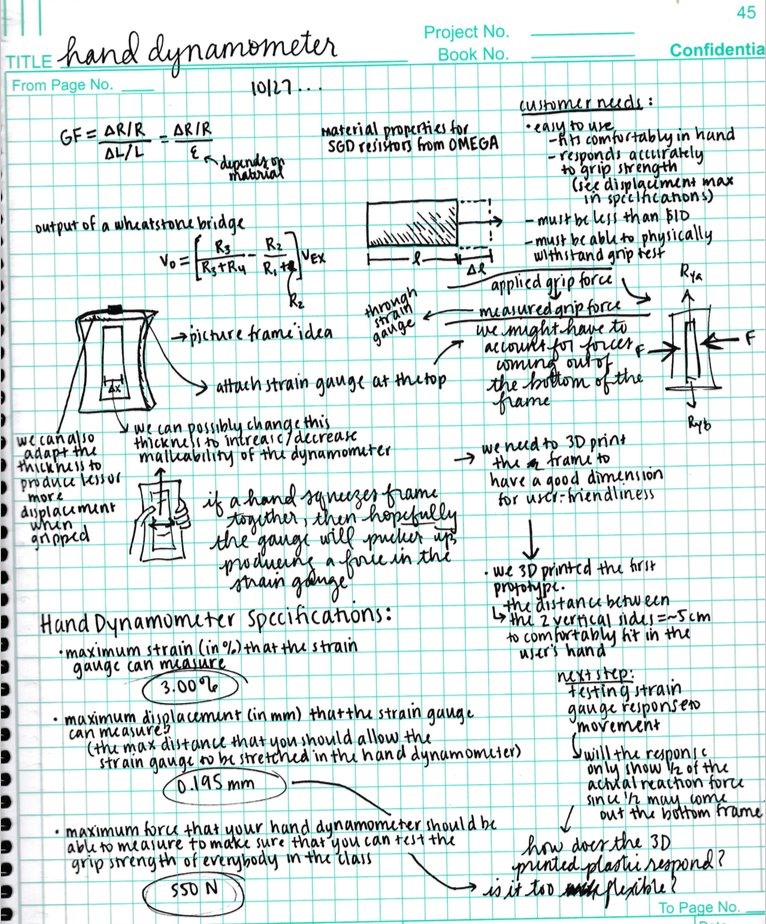 45
Project No.
Book No.
Confidentia
TITLE hand dynamometer
From Page No.
10/27...
GF = ΔR/R / ΔL/L = ΔR/R / ε
depends on
material
material properties for
SGD resistors from OMEGA
customer needs:
• easy to use
- fits comfortably in hand
- responds accurately
to grip strength
(see displacement max
in specifications)
- must be less than $10
- must be able to physically
withstand grip test
output of a wheatstone bridge
Vo = [R3 / R3+R4 - R2 / R1+ ] VEX
R2
l
Δl
applied grip force
through
strain
gauge
measured grip force
we might have to
account for forces
coming out of
the bottom of the
frame
Rya
F
F
Ryb
→ picture frame idea
Δx
→ attach strain gauge at the top
we can also
adapt the
thickness to
produce less or
more
displacement
when
gripped
we can possibly change this
thickness to increase/decrease
malleability of the dynamometer
if a hand squeezes frame
together, then hopefully
the gauge will pucker up,
producing a force in the
strain gauge
→ we need to 3D print
the frame to
have a good dimension
for user-friendliness
• we 3D printed the first
prototype.
↳ the distance between
the 2 vertical sides = ~5cm
to comfortably fit in the
user's hand
Hand Dynamometer Specifications:
• maximum strain (in %) that the strain
gauge can measure
3.00%
• maximum displacement (in mm) that the strain gauge
can measure?
(the max distance that you should allow the
strain gauge to be stretched in the hand dynamometer)
0.195 mm
• maximum force that your hand dynamometer should be
able to measure to make sure that you can test the
grip strength of everybody in the class
550 N
next step:
testing strain
gauge response to
movement
↳ will the response
only show 1/2 of the
actual reaction force
since 1/2 may come
out the bottom frame
how does the 3D
printed plastic respond?
→ is it too flexible?
To Page No.